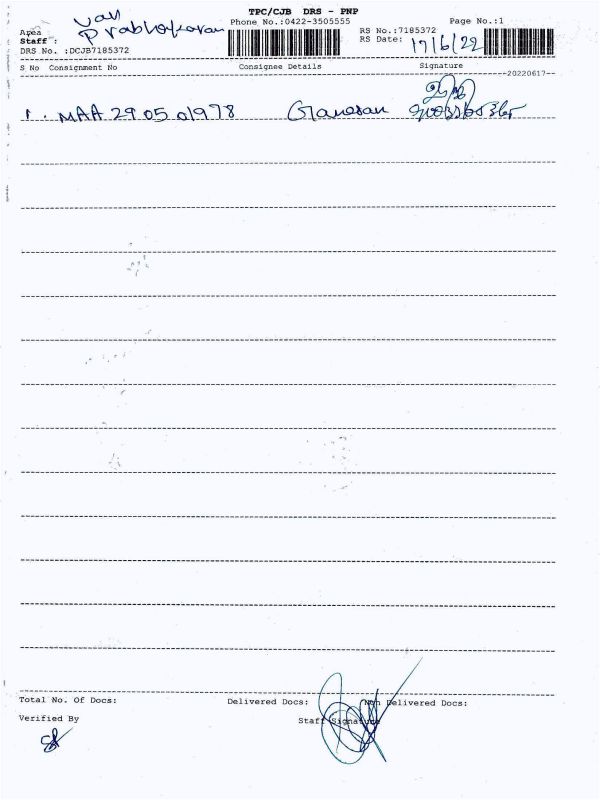 TPC/CJB DRS - PNP
Phone No.:0422-3505555
Page No.:1
Area
van
Staff :
Prabhakaran
RS No.:7185372
RS Date: 17/6/22
DRS No. :DCJB7185372
S No Consignment No Consignee Details Signature
20220617
1. MAA 29 05 01978 Ganesan
Total No. Of Docs: Delivered Docs: Non Delivered Docs:
Verified By Staff Signature